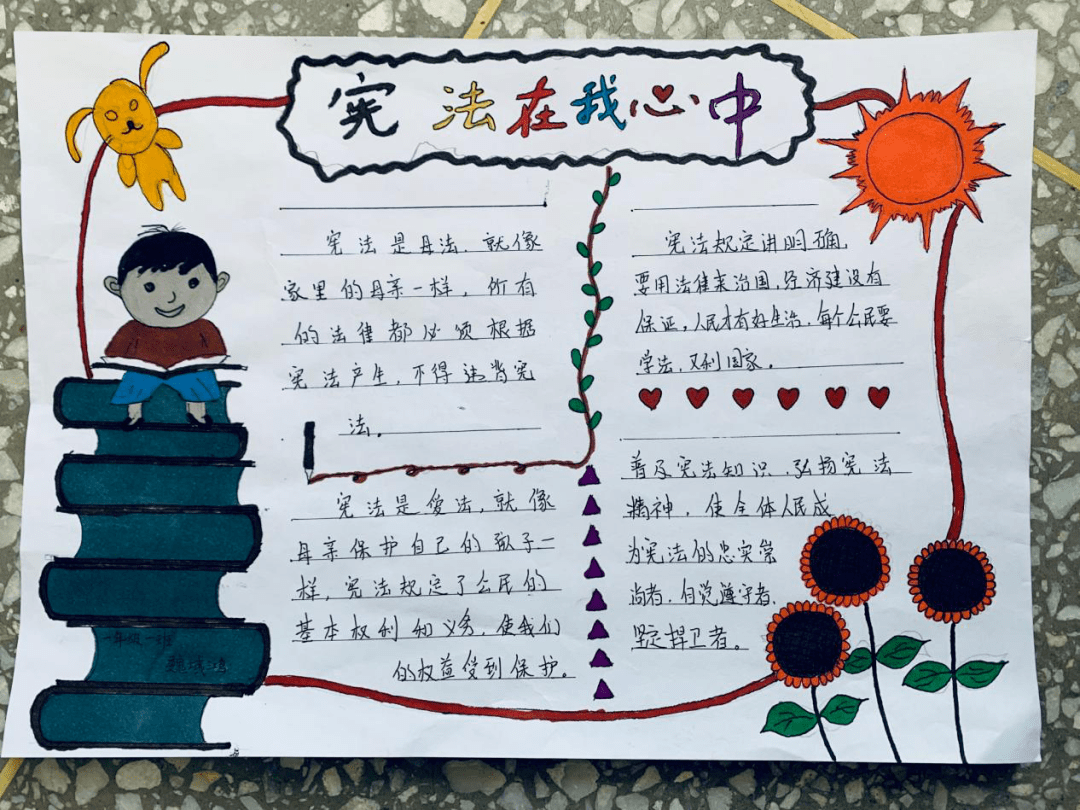 宪法在我心中
宪法是母法，就像
家里的母亲一样，所有
的法律都必须根据
宪法产生，不得违背宪
法。
宪法是爱法，就像
母亲保护自己的孩子一
样，宪法规定了公民的
基本权利和义务，使我们
的权益受到保护。
宪法规定讲明确，
要用法律来治国，经济建设有
保证，人民才有好生活，每个公民要
学法，又利国家。
普及宪法知识，弘扬宪法
精神，使全体人民成
为宪法的忠实崇
尚者，自觉遵守者，
坚定捍卫者。
一年级一班